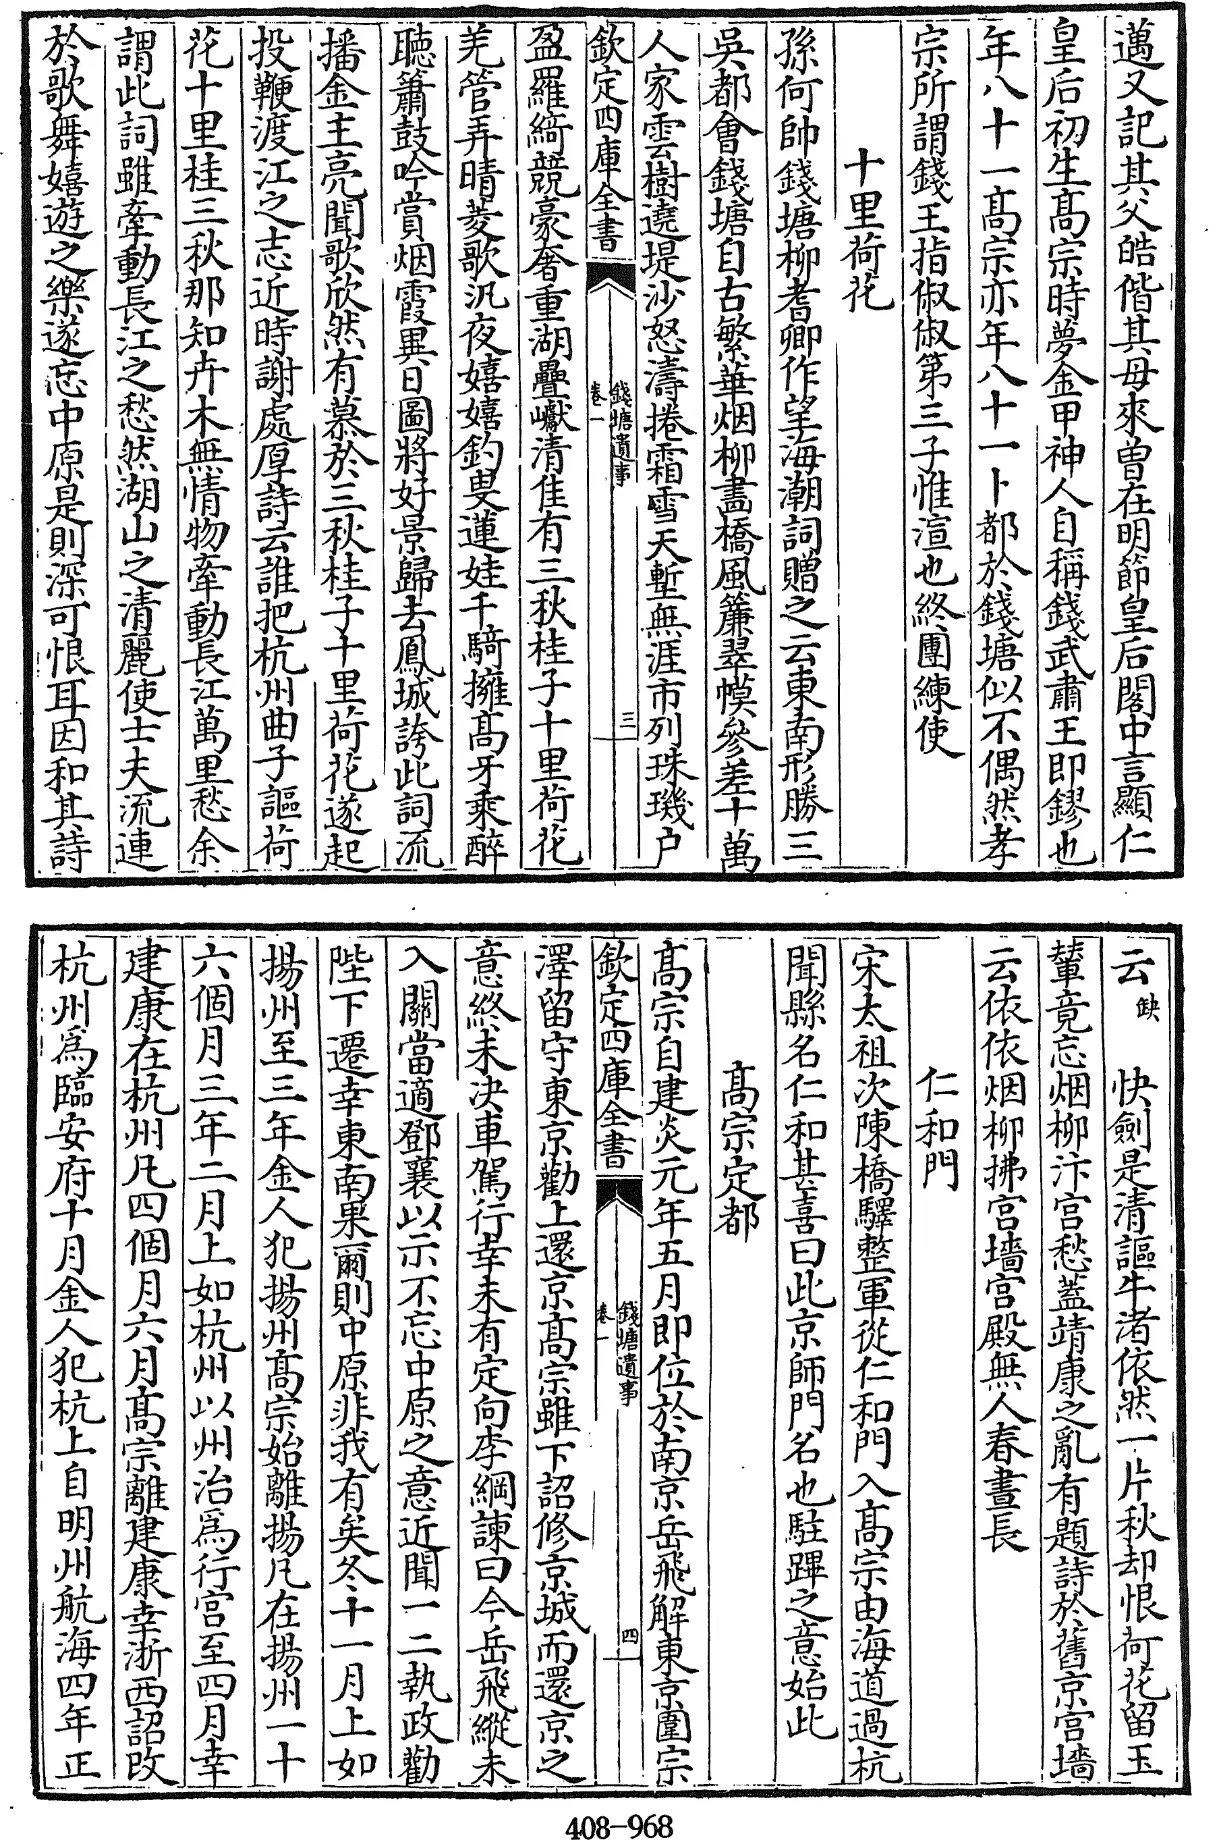 邁又記其父皓偕其母來曽在明節皇后閣中言顯仁
皇后初生髙宗時夢金甲神人自稱錢武肅王即鏐也
年八十一髙宗亦年八十一卜都於錢塘似不偶然孝
宗所謂錢王指俶俶第三子惟渲也終團練使
十里荷花
孫何帥錢塘柳耆卿作望海潮詞贈之云東南形勝三
吳都會錢塘自古繁華烟柳畫橋風簾翠幙參差十萬
人家雲樹遶堤沙怒濤捲霜雪天塹無涯市列珠璣户
欽定四庫全書
錢塘遺事
卷一
三
盈羅綺競豪奢重湖疊巘清佳有三秋桂子十里荷花
羌管弄晴菱歌汎夜嬉嬉釣叟蓮娃千騎擁髙牙乘醉
聽簫鼓吟賞烟霞異日圖將好景歸去鳳城誇此詞流
播金主亮聞歌欣然有慕於三秋桂子十里荷花遂起
投鞭渡江之志近時謝處厚詩云誰把杭州曲子謳荷
花十里桂三秋那知卉木無情物牽動長江萬里愁余
謂此詞雖牽動長江之愁然湖山之清麗使士夫流連
於歌舞嬉遊之樂遂忘中原是則深可恨耳因和其詩
云缺 快劍是清謳牛渚依然一片秋却恨荷花留玉
輦竟忘烟柳汴宫愁蓋靖康之亂有題詩於舊京宫墻
云依依烟柳拂宫墻宫殿無人春晝長
仁和門
宋太祖次陳橋驛整軍從仁和門入髙宗由海道過杭
聞縣名仁和甚喜曰此京師門名也駐蹕之意始此
髙宗定都
髙宗自建炎元年五月即位於南京岳飛解東京圍宗
欽定四庫全書
錢塘遺事
卷一
四
澤留守東京勸上還京髙宗雖下詔修京城而還京之
意終未決車駕行幸未有定向李綱諫曰今岳飛縱未
入關當適鄧襄以示不忘中原之意近聞一二執政勸
陛下遷幸東南果爾則中原非我有矣冬十一月上如
揚州至三年金人犯揚州髙宗始離揚凡在揚州一十
六個月三年二月上如杭州以州治爲行宫至四月幸
建康在杭州凡四個月六月髙宗離建康幸浙西詔改
杭州爲臨安府十月金人犯杭上自明州航海四年正
408-968